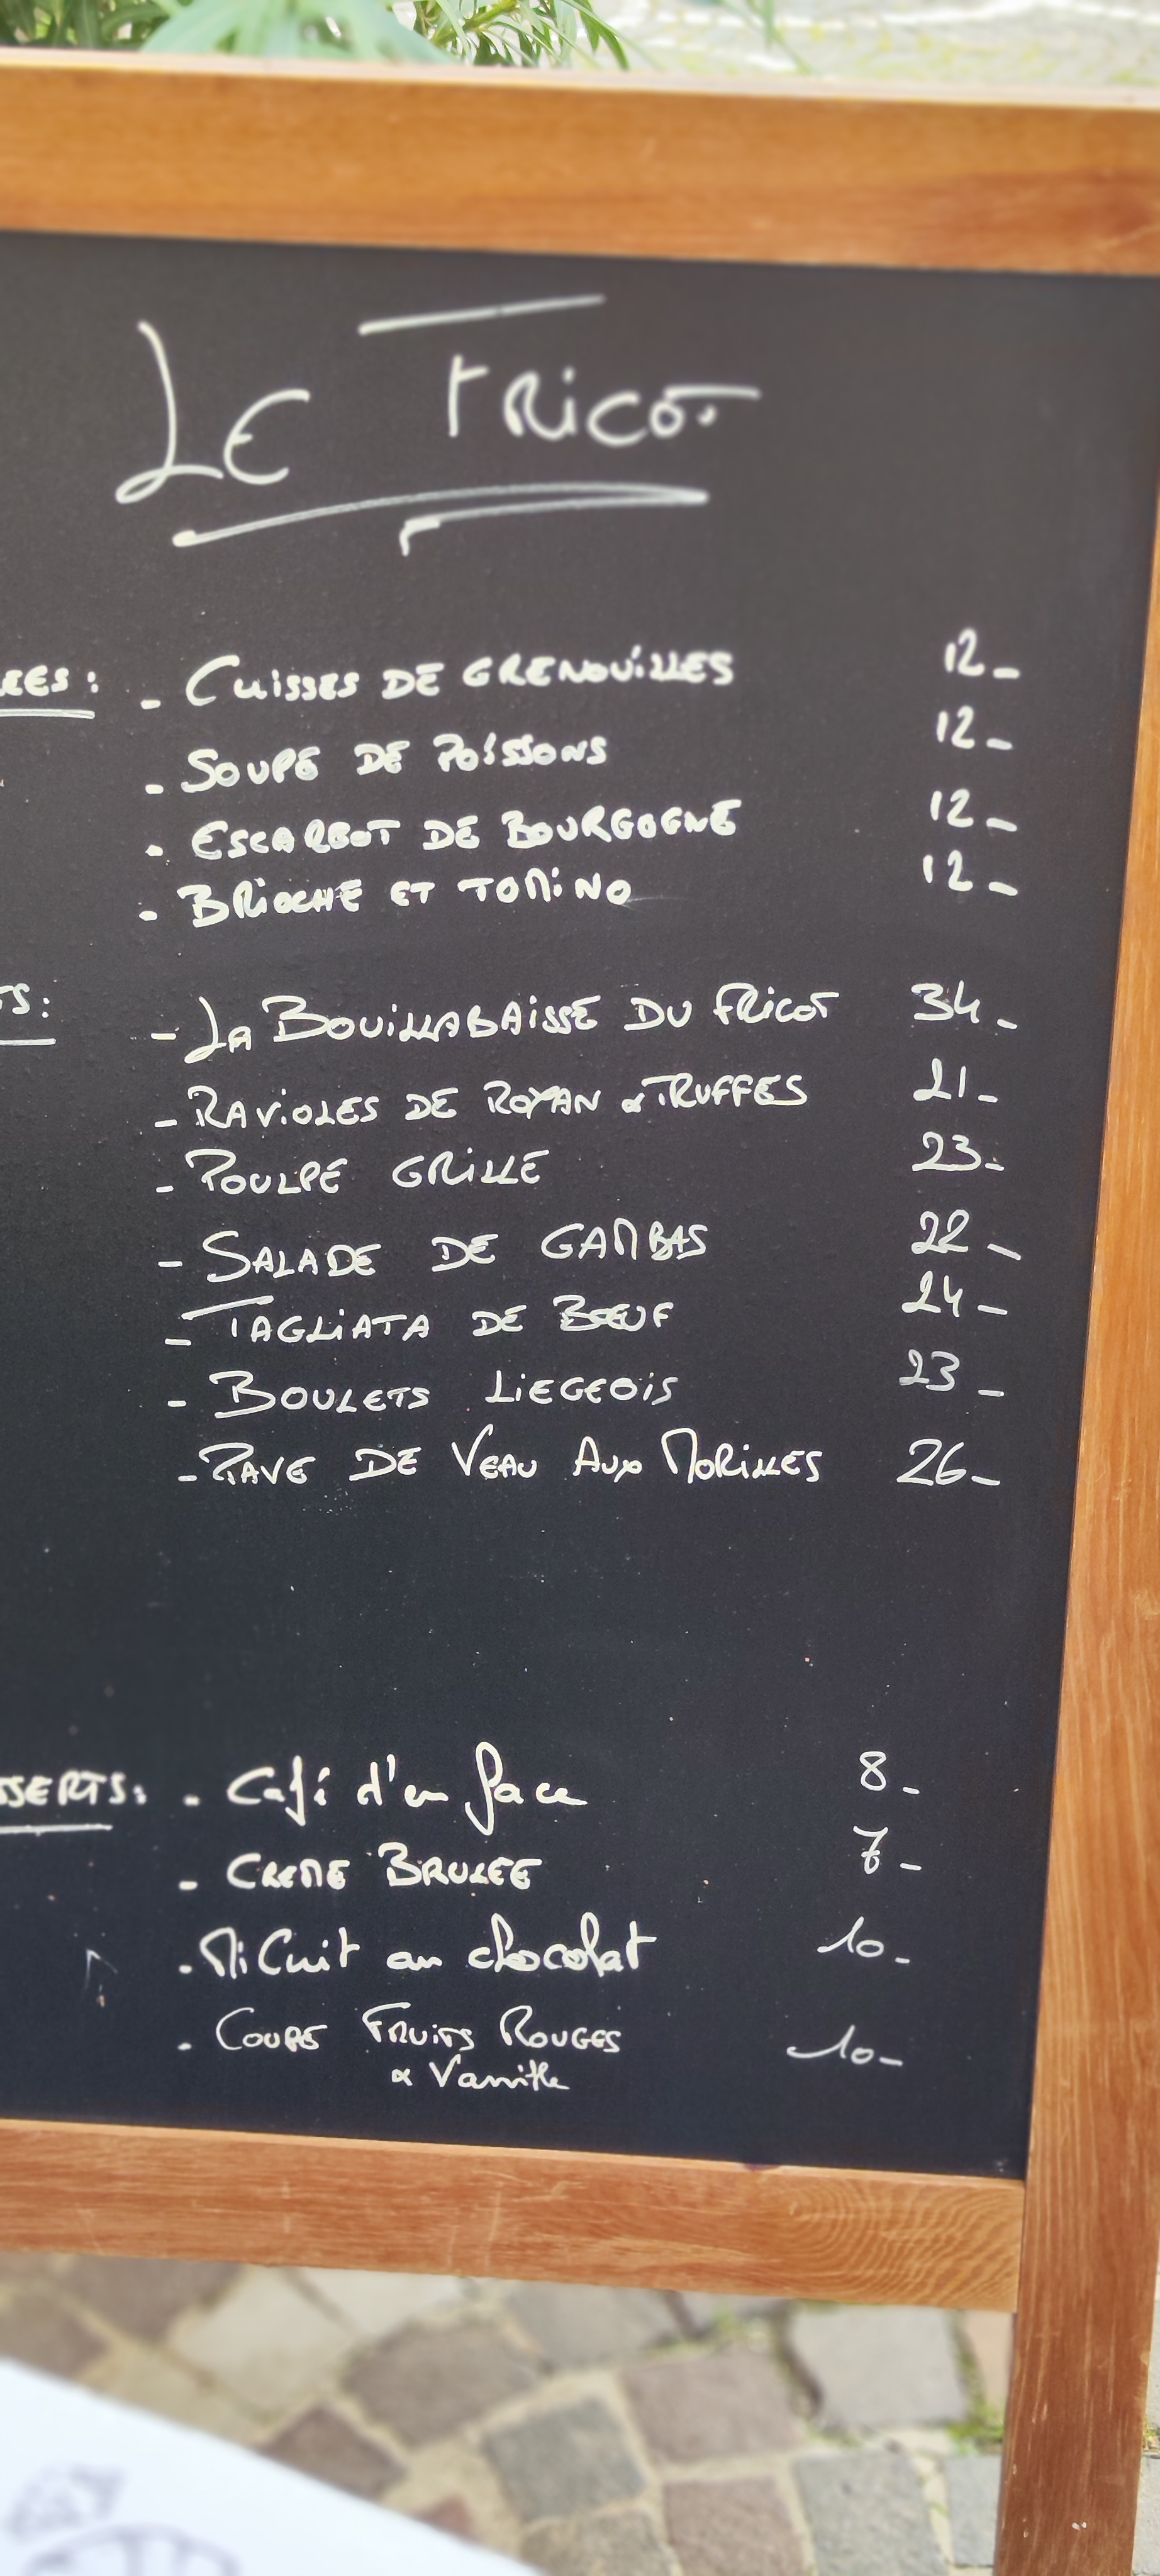 LE FRICOT
EES: - CUISSES DE GRENOUILLES 12-
- SOUPE DE POISSONS 12-
- ESCARGOT DE BOURGOGNE 12-
- BRIOCHE ET TOMINO 12-
TS: - LA BOUILLABAISSE DU FRICOT 34-
- RAVIOLES DE ROYAN & TRUFFES 21-
- POULPE GRILLE 23-
- SALADE DE GAMBAS 22-
- TAGLIATA DE BOEUF 24-
- BOULETS LIEGEOIS 23-
- PAVE DE VEAU AUX MORILLES 26-
SSERTS: - Café d'en face 8-
- CREME BRULEE 7-
- Mi Cuit au chocolat 10-
- COUPE FRUITS ROUGES 10-
& Vanille